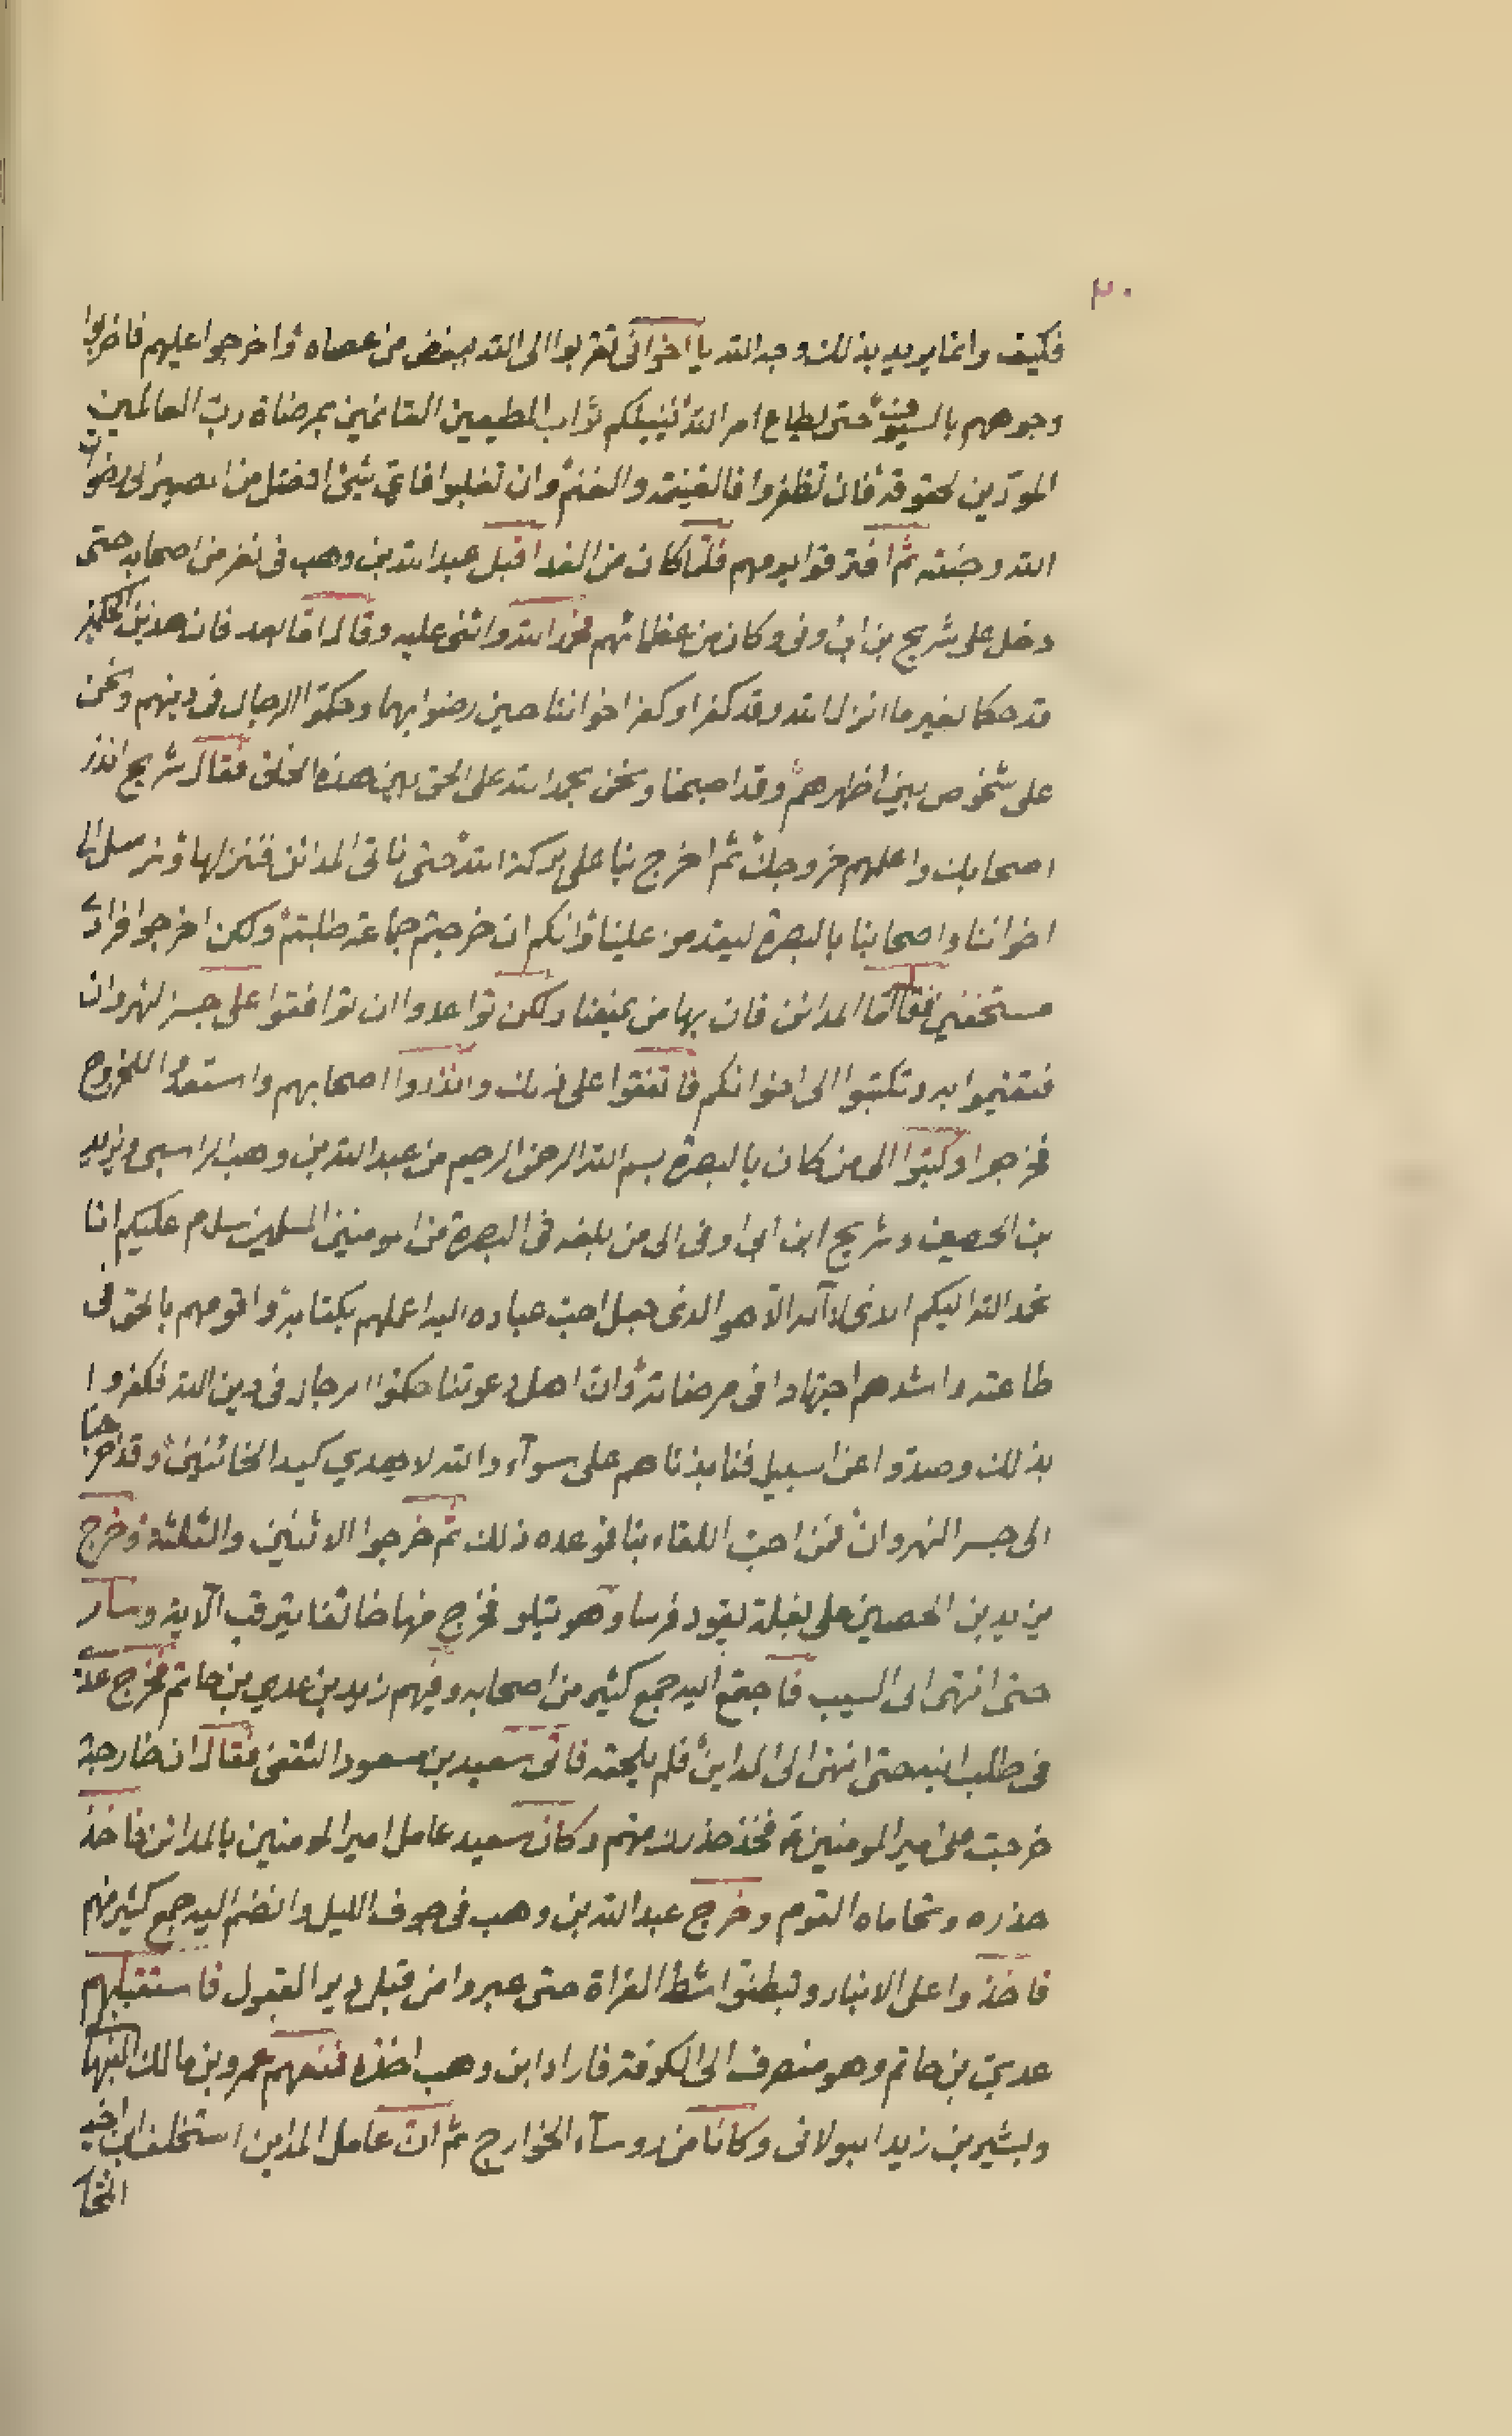 ٣٠
فكيف وانما يريد بذلك وجه الله يا اخواني تقربوا الى الله ببغض من عصاه واخرجوا عليهم فاضربوا
وجوههم بالسيوف حتى يطاع امر الله يثيبكم ثواب المطيعين القائمين بمرضاة رب العالمين
المودّين لحقوقه فان تظفروا فالغنيمة والغنم وان تغلبوا فايّ شئ افضل من المصير الى رضوان
الله وجنته ثم افترقوا يومهم فلمّا كان من الغد اقبل عبد الله بن وهب في نفر من اصحابه حتى
دخل على شريح بن ابي اوفى وكان من عظمائهم فحمد الله واثنى عليه وقال اما بعد فان هذين الحكمين
قد حكما بغير ما انزل الله وقد كفرا وكفر اخواننا حين رضوا بهما وحكموا الرجال في دينهم ونحن
على شخوص بين اظهرهم وقد اصبحنا ونحن بحمد الله على الحق بين هذه الخلق فقال شريح انذر
اصحابك واعلمهم خروجك ثم اخرج بنا على بركة الله حتى ناتي المدائن فننزلها ونرسل الى
اخواننا واصحابنا بالبصرة ليقدمون علينا فانكم ان خرجتم جماعة طلبتم ولكن اخرجوا فرادى
مستخفين فقال اما المدائن فان بها من يمنعنا ولكن تواعدوا ان توافقوا على جسر النهروان
فتقيموا به وتكتبوا الى اخوانكم فاتفقوا على ذلك وانذروا اصحابهم واستعدوا للخروج
فخرجوا وكتبوا الى من كان بالبصرة بسم الله الرحمن الرحيم من عبد الله بن وهب الراسبي ويزيد
بن الحصين وشريح ابن ابي اوفى الى من بلغه في البصرة من المومنين المسلمين سلام عليكم انا
نحمد الله اليكم الذي لا اله الا هو الذي جعل احب عباده اليه اعملهم بكتابه واقومهم بالحق في
طاعته واشدهم اجتهادا في مرضاته وان اهل دعوتنا حكموا الرجال في دين الله فكفروا
بذلك وصدوا عن السبيل فنابذناهم على سوآء والله لا يهدي كيد الخائنين وقد خرجنا
الى جسر النهروان فمن احب اللقاء بنا فموعده ذلك ثم خرجوا الاثنين والثلثة وخرج
يزيد بن الحصين على بغلة يقود فرسا وهو يتلو فخرج منها خائفا يترقب الآية وسار
حتى انتهى الى السيب فاجتمع اليه جمع كثير من اصحابه وفيهم زيد بن عدي بن حاتم فخرج عدي
في طلب ابنه حتى انتهى الى المداين فلم يلحقه فاتى سعيد بن مسعود الثقفي فقال ان خارجة
خرجت على امير المومنين فخذ حذرك منهم وكان سعيد عامل امير المومنين بالمدائن فاخذ
حذره وتحاماه القوم وخرج عبد الله بن وهب في جوف الليل وانضم اليه جمع كثير منهم
فاخذوا على الانبار وتبطنوا شط الفراة حتى عبروا من قبل دير العقول فاستقبلهم
عدي بن حاتم وهو منصرف الى الكوفة فاراد ابن وهب اخذه فمنعهم عمرو بن مالك النبهاني
وبشير بن زيد البولاني وكانا من روسآء الخوارج ثم ان عامل المداين استخلف ابن اخيه
المختار